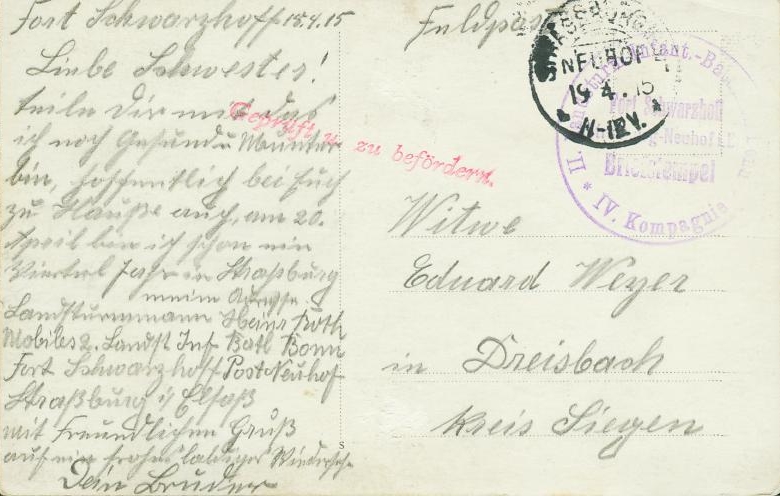 Fort Schwarzhoff 15.4.15
Liebe Schwester!
teile Dir mit das
ich noch Gesund u Munter
bin, hoffentlich bei Euch
zu Hauße auch, am 20.
April bin ich schon ein
Viertel Jahr in Straßburg
meine Adresse
Landsturmmann Heinr Roth
Mobiles 2. Landst Inf Batl Bonn
Fort Schwarzhoff Post Neuhof
Straßburg i/ Elsaß
mit Freundlichen Gruß
auf ein frohes baldiges Wiedersehn
Dein Bruder
Geprüft u. zu befördern.
Feldpost
STRASSBURG
NEUHOF
19.4.15
N-12V.
II. Landsturm-Infant.-Ba
Fort Schwarzhoff
g-Neuhof i.E
Briefstempel
* IV. Kompagnie
Witwe
Eduard Weyer
in Dreisbach
Kreis Siegen
S